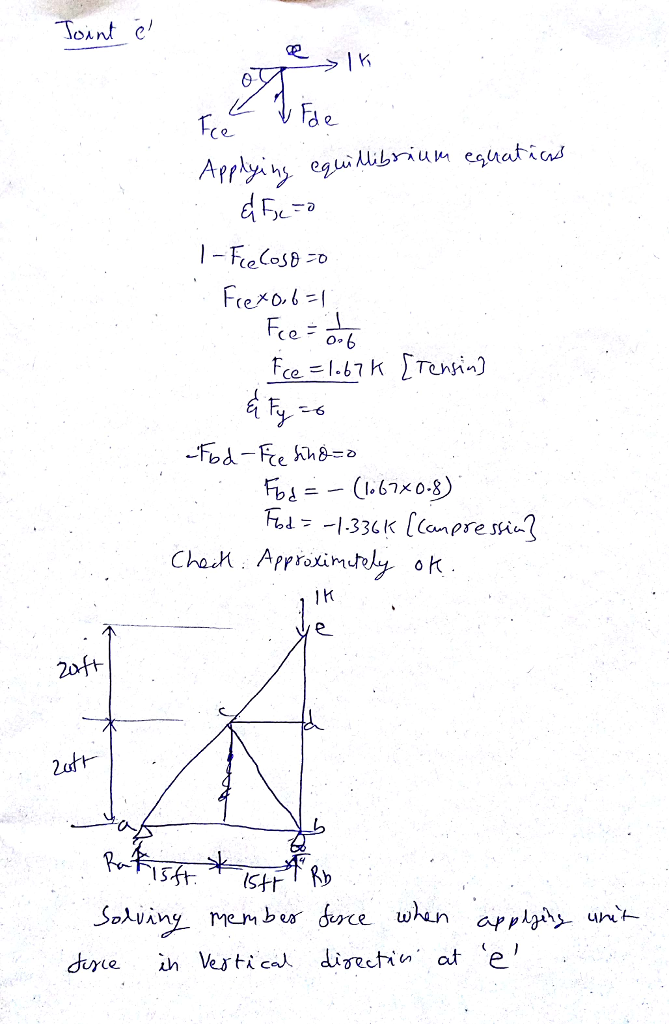 Joint 'e'
e
1K
θ
Fce
Fde
Applying equillibrium equations
ΣFx=0
1-Fce Cosθ=0
Fce×0.6=1
Fce = 1/0.6
Fce = 1.67 K [Tensin]
ΣFy=0
-Fbd-Fce Sinθ=0
Fbd = - (1.67×0.8)
Fbd = -1.336K [Compression]
Check. Approximately ok.
1K
e
20ft
c
d
20ft
a
b
Ra
15ft.
15ft
Rb
Solving member force when applying unit
force in Vertical direction at 'e'